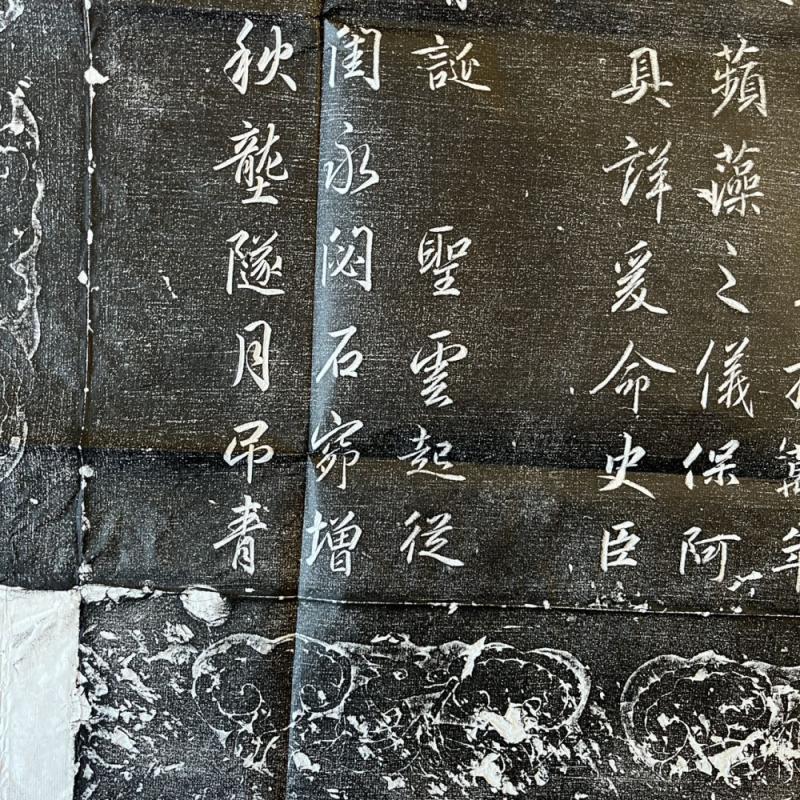 蘋藻之儀保阿
具詳爰命史臣
誕 聖雲起從
閨永閟石窌增
秋壟隧月吊青